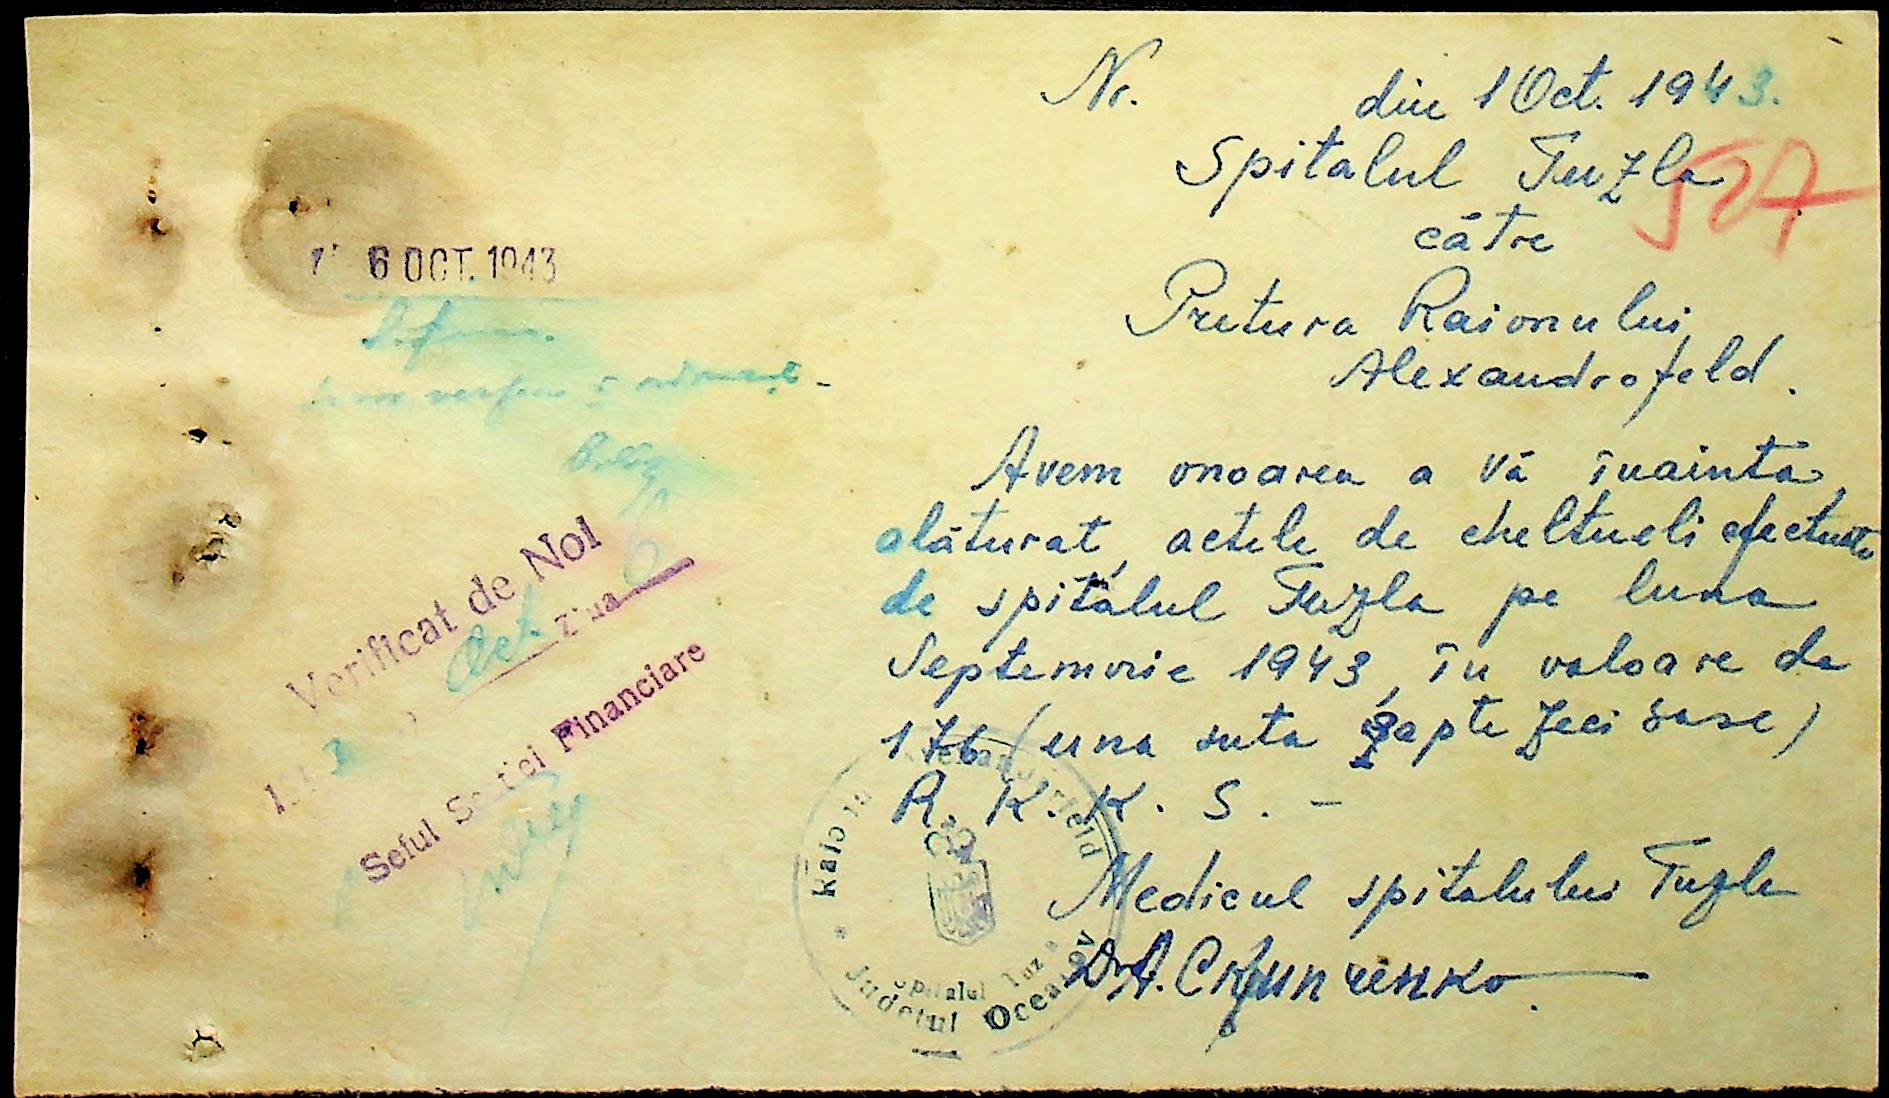 Nr. din 1 Oct. 1943.
Spitalul Tuzla
527
către
Pretura Raionului
Alexandrofeld.
Avem onoarea a vă înainta,
alăturat, actele de cheltueli efectuate
de spitalul Tuzla pe luna
Septemvrie 1943, în valoare de
176 (una suta șapte zeci sase)
R. K. K. S. –
Medicul spitalului Tuzla
Dr A.
6 OCT. 1943
Verificat de Noi
Oct. Ziua
Seful Sectiei Financiare
Raion
Spitalul Tuzla
Judetul Oceacov